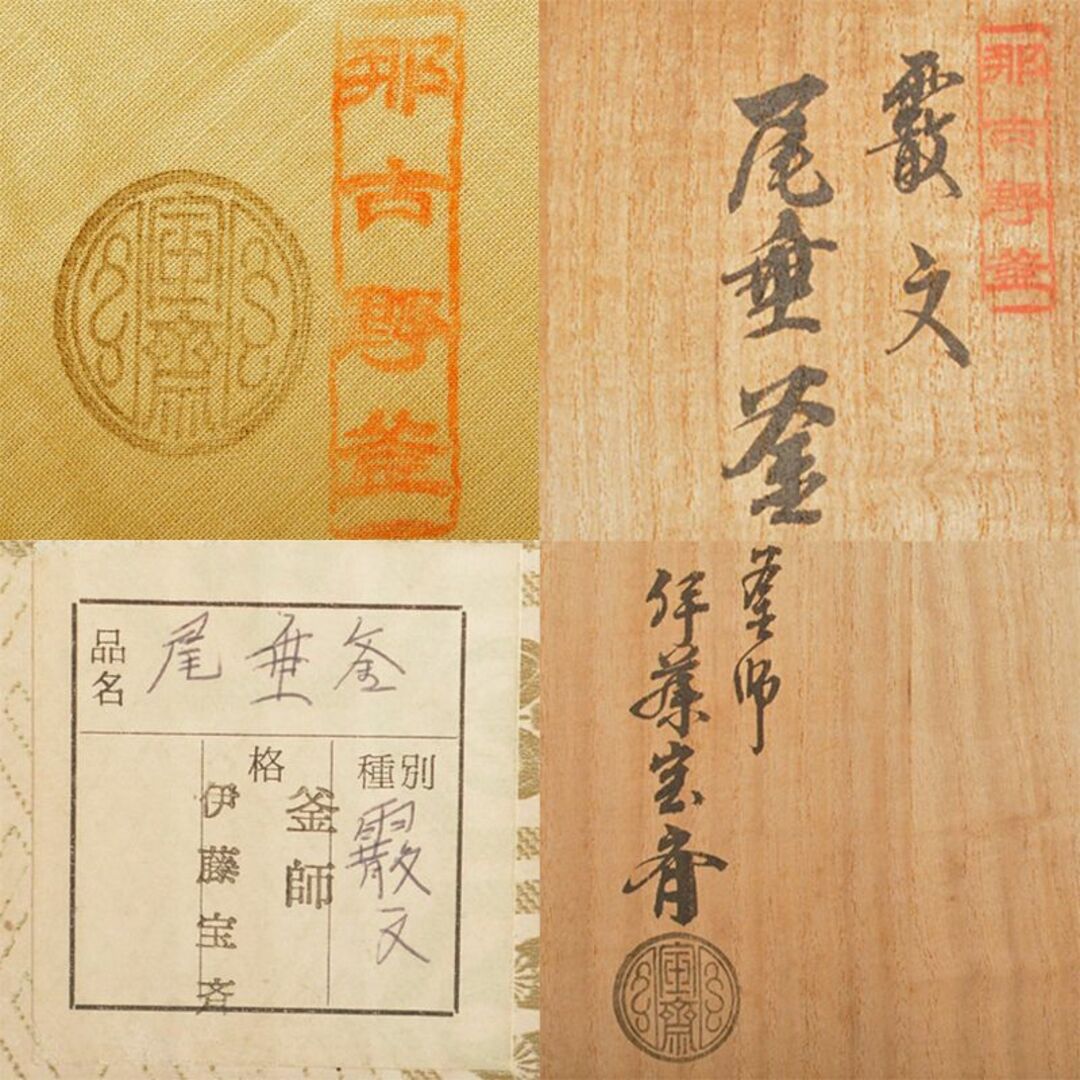 那古野釜
宝齋
那古野釜
霰文
尾垂釜
品名
尾垂釜
種別
霰文
格
釜師
伊藤宝斉
釜師
伊藤宝斉
宝齋